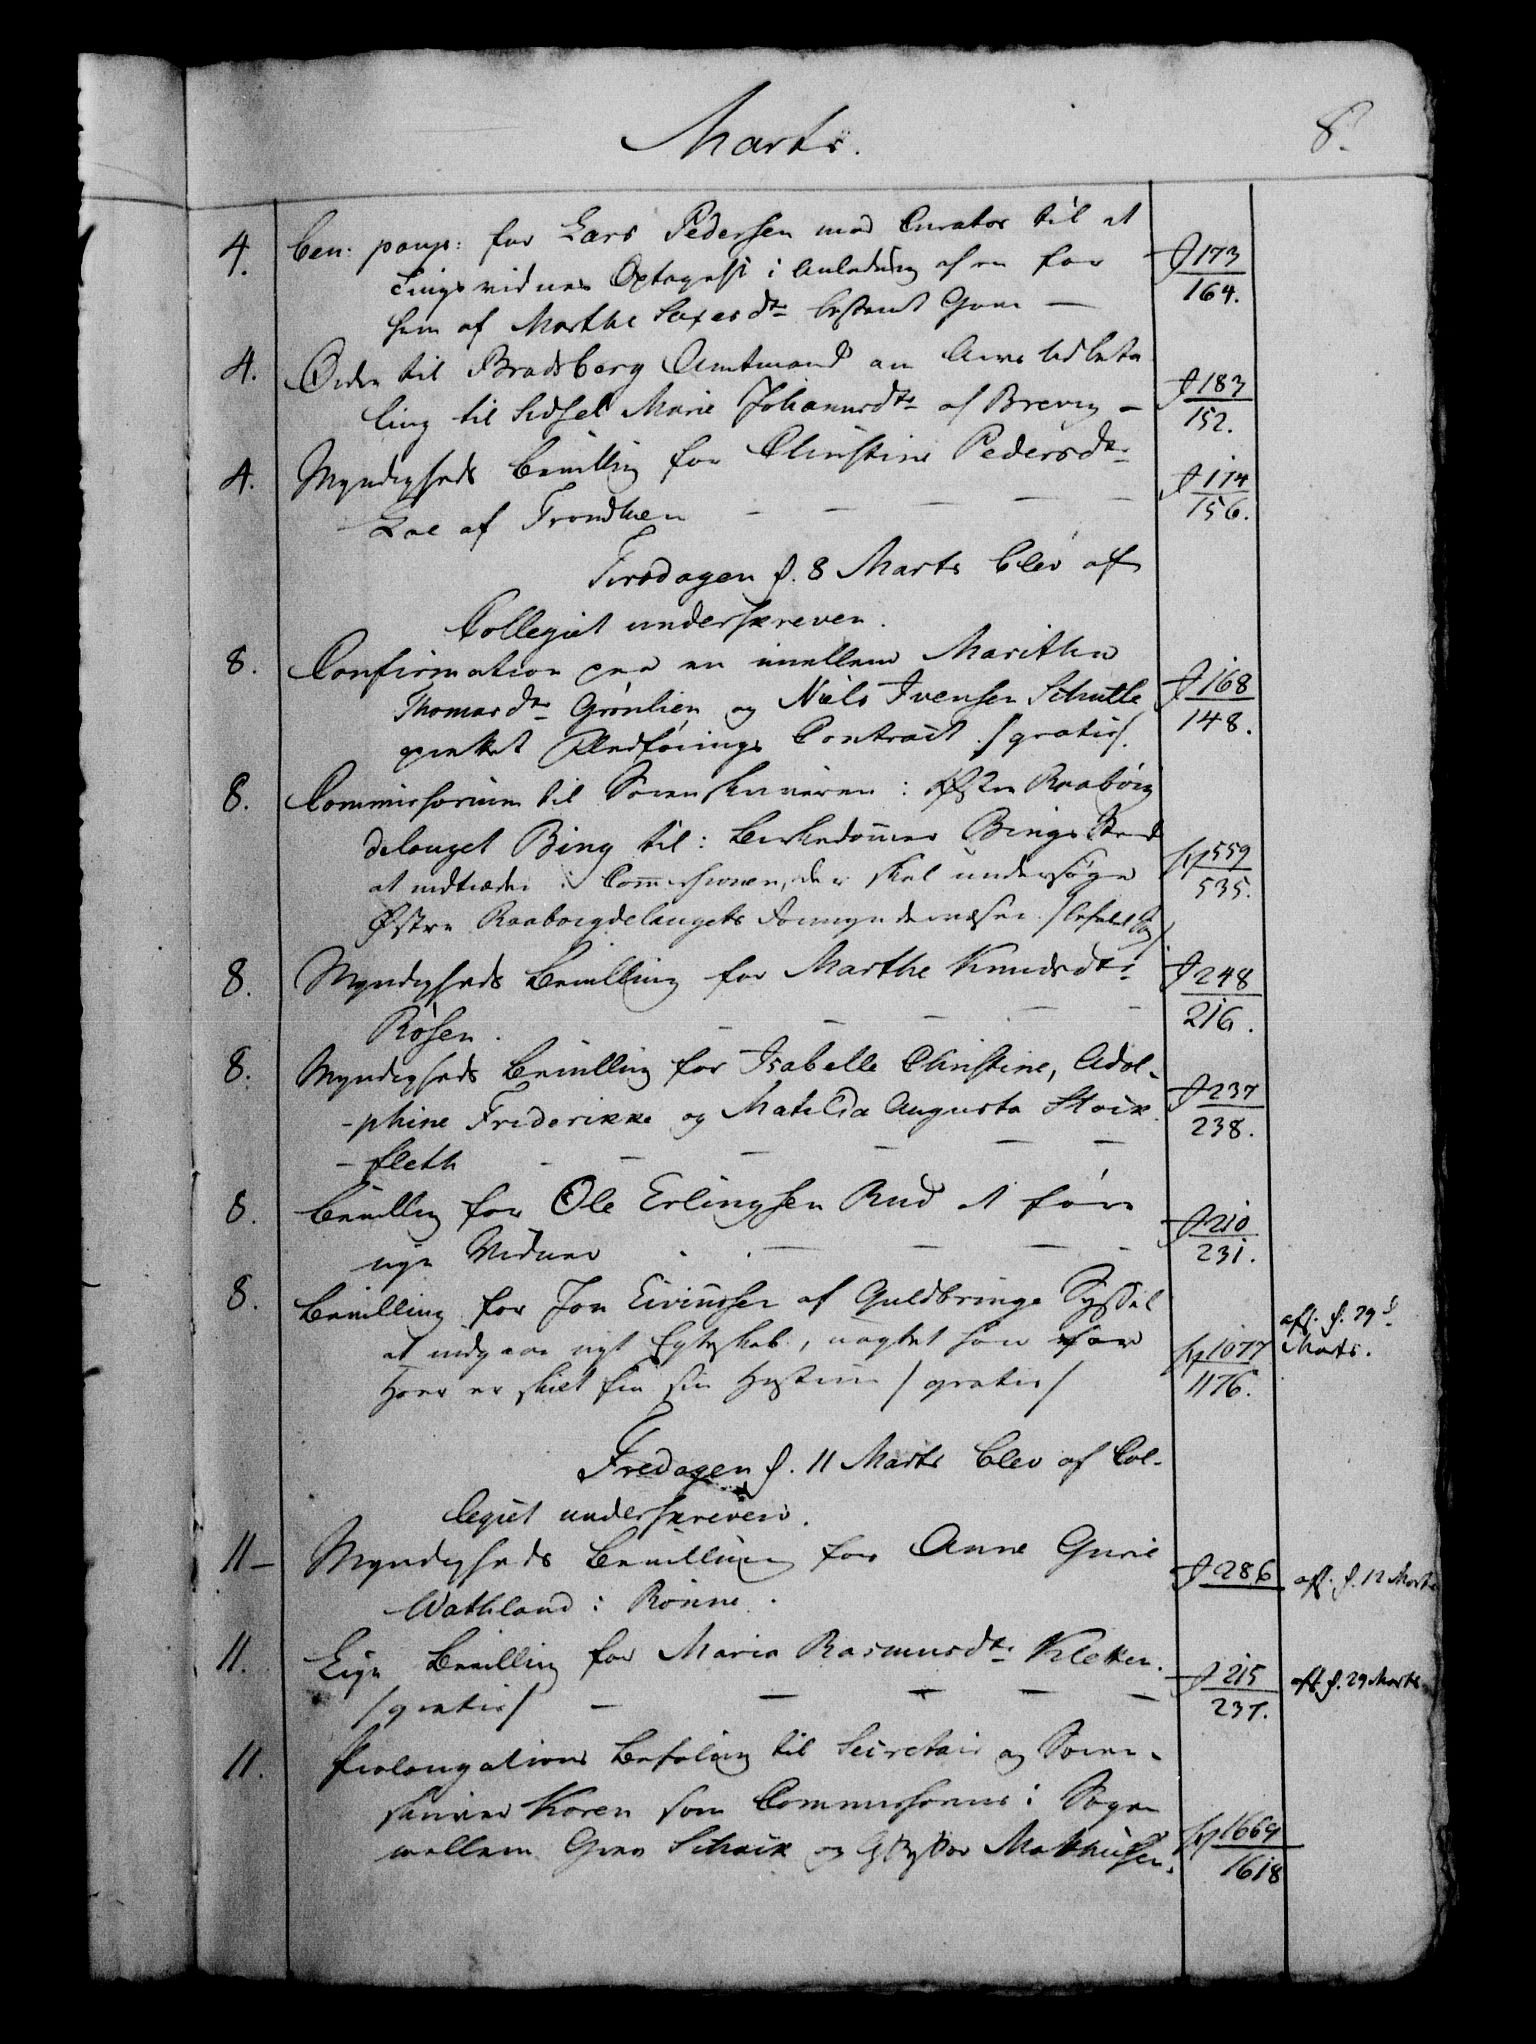 Marts.
8.
4. ben: paup: for Lars Pedersen med Curator til et
Tingsvidnes Optagelse i Anledning af en for
ham af Marthe Saxesdtr bestemt Gave —
J 173
164.
4. Ordre til Bradsberg Amtmand om Arvs Udbeta
ling til Sidsel Marie Johannesdtr af Brevig —
J 183
152.
4. Myndigheds Bevilling for Christine Pedersdtr
Lae af Trondhiem
J 114
156.
Tirsdagen d. 8 Marts blev af
Collegiet underskreven.
8. Confirmation paa en imellem Marithe
Thomasdtr Grønlien og Niels Ivensen Schutle
oprettet Contract /gratis/.
J 168
148.
8. Commissorium til Sorenskriveren i Østre Raabøig
delauget Bing til i Birkedommer Bings Sted
at indtræde i Commissionen, der skal undersøge
Østre Raaboigdelaugets Formyndervæsen
559
535.
8. Myndigheds Bevilling for Marthe Knudsdtr
Røsen.
J 248
216.
8. Myndigheds Bevilling for Isabelle Christine, Adol-
-phine Frederikke og Matilda Augusta Stoik
-fleth
J 237
238.
8. Bevilling for Ole Erlingsen Rud at føre
nye Vidner
J 210
231.
8. Bevilling for Jon Eivindsen af Guldbringe Syssel
at indgaae nyt Egteskab, uagtet han for
Hoer er skilt fra sin Hustrue /gratis/
1077
1176.
aff. d. 29 d
Marts.
Fredagen d. 11 Marts blev af Col-
legiet underskreven.
11 — Myndigheds Bevilling for Anne Gurie
Wathland i Rønne.
J 286
aff. d. 12 Marts
11. Eege Bevilling for Maria Rasmusdtr Kletten.
/gratis/
J 215
237.
aff. d. 29 Marts
11. Prolongations Befaling til Secretair og Soren-
skriver Koren som Commissorius i Sagen
mellem Grev Schack og Mathiesen.
1669
1618